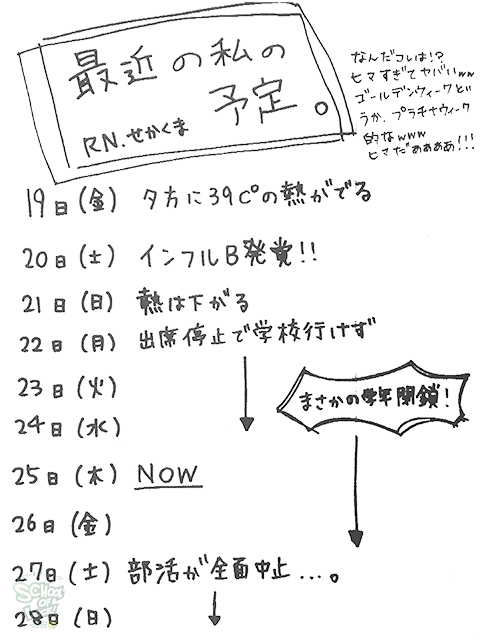 最近の私の
予定。
RN.せかくま
なんだコレは!?
ヒマすぎてヤバいww
ゴールデンウィークと
うか、プラチナウィーク
的なwww
ヒマだああああ!!!
19日(金) 夕方に39C°の熱がでる
20日(土) インフルB発覚!!
21日(日) 熱は下がる
22日(月) 出席停止で学校行けず
23日(火)
まさかの学年閉鎖!
24日(水)
25日(木) NOW
26日(金)
27日(土) 部活が全面中止...。
28日(日)
SCHOOL OF LOCK!